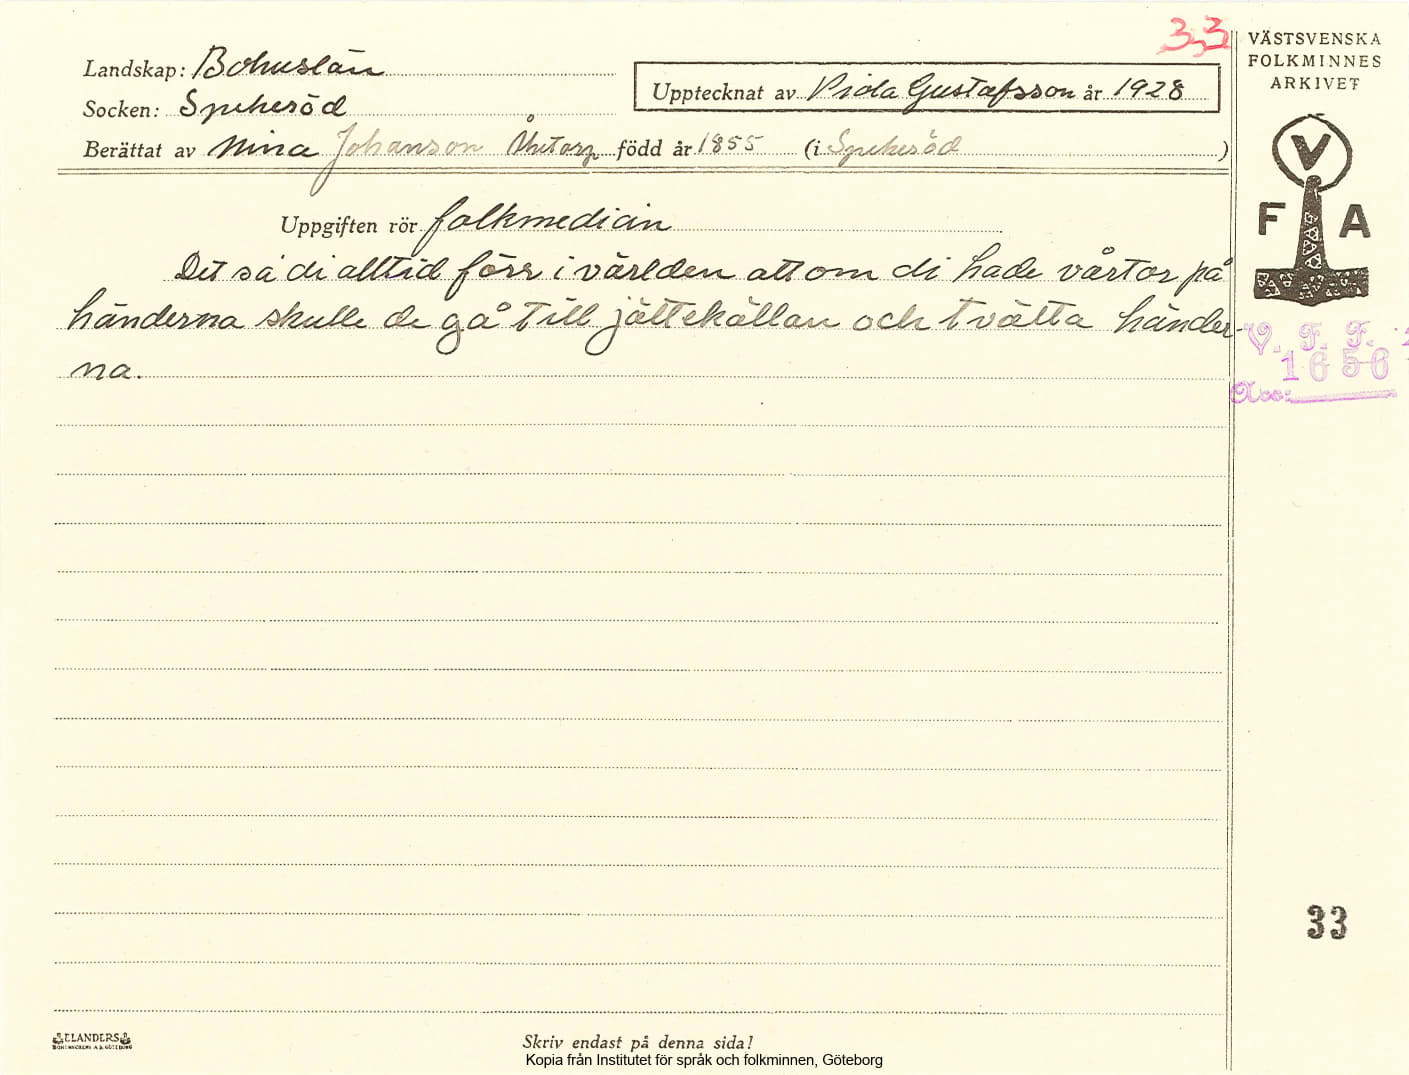 33
VÄSTSVENSKA
FOLKMINNES
ARKIVET
Landskap: Bohuslän
Socken: Spekeröd
Upptecknat av Vida Gustafsson år 1928
Berättat av Nina Johanson född år 1855 (i Spekeröd )
V
F A
Uppgiften rör folkmedicin
Det sa di alltid förr i världen att om di hade vårtor på
händerna skulle de gå till jättekällan och tvätta händer-
na.
V. F. F.
1656
33
ELANDERS
Skriv endast på denna sida!
Kopia från Institutet för språk och folkminnen, Göteborg